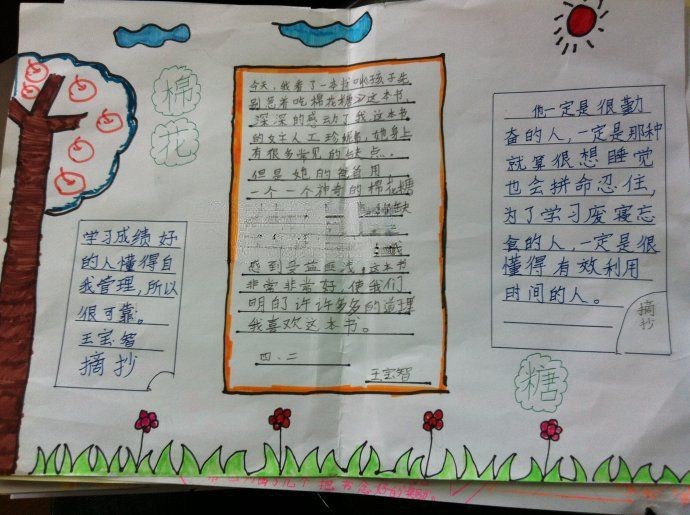 棉
花
学习成绩好
的人懂得自
我管理,所以
很可靠。
王宝智
摘抄
今天,我看了一本书叫孩子先
别急着吃棉花糖,这本书,
深深的感动了我这本书
的女主人工珍妮,她身上
有很多常见的缺点.
但是她的爸爸用
一个一个神奇的棉花糖
缺
我
感到受益匪浅,这本书
非常非常好,使我们
明白了许许多多的道理
我喜欢这本书。
四.二
王宝智
他一定是很勤
奋的人,一定是那种
就算很想睡觉
也会拼命忍住,
为了学习废寝忘
食的人,一定是很
懂得有效利用
时间的人。
摘
抄
糖